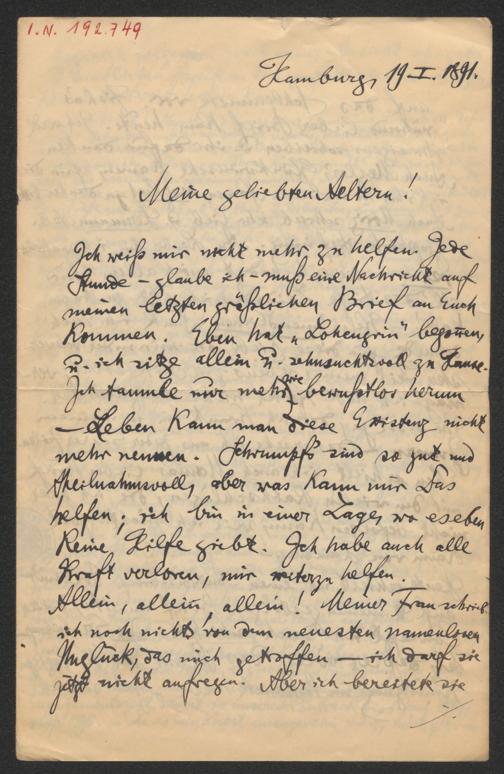 I.N. 192.749
Hamburg, 19 I. 1891.
Meine geliebten Aeltern!
Ich weiß mir nicht mehr zu helfen. Jede
Stunde – glaube ich – muß eine Nachricht auf
meinen letzten gräßlichen Brief an Euch
kommen. Eben hat „Lohengrin" begonnen,
u. ich sitze allein u. sehnsuchtsvoll zu Hause.
Ich taumle nur mehr wie bewußtlos herum
– Leben kann man diese Existenz nicht
mehr nennen. Schrumpfs sind so gut und
theilnahmsvoll, aber was kann mir das
helfen; ich bin in einer Lage, wo es eben
keine Hilfe giebt. Ich habe auch alle
Kraft verloren, mir weiterzuhelfen.
Allein, allein, allein! Meiner Frau schrieb
ich noch nichts von dem neuesten namenlosen
Unglück, das mich getroffen — ich darf sie
jetzt nicht aufregen. Aber ich bereitete sie